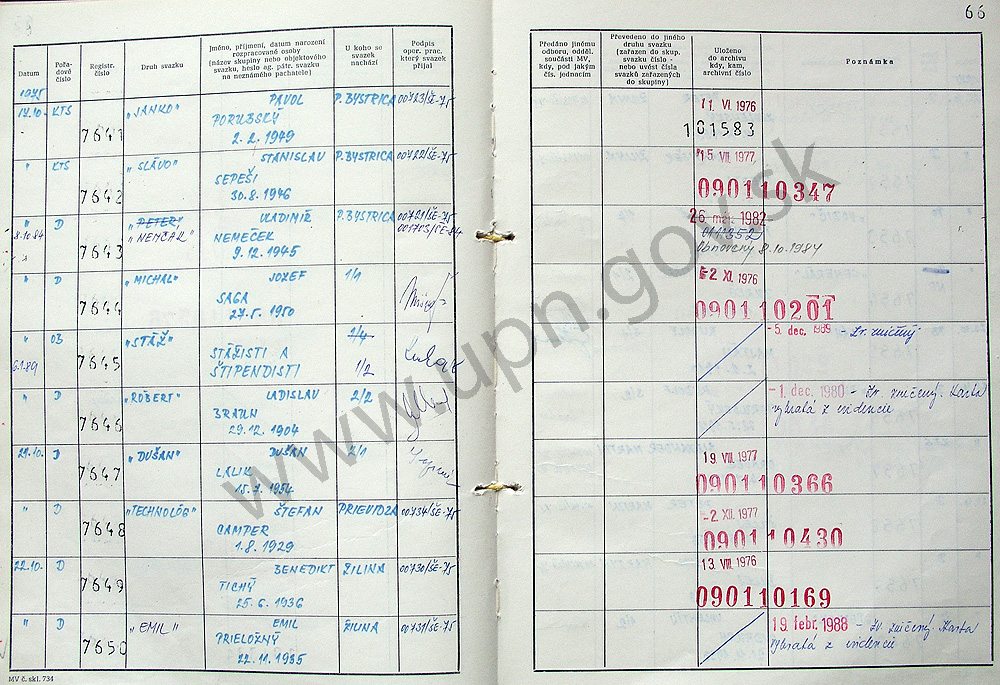 66
Datum
Pořa-
dové
číslo
Registr.
číslo
Druh svazku
Jméno, příjmení, datum narození
rozpracované osoby
(název skupiny nebo objektového
svazku, heslo ag. pátr. svazku
na neznámého pachatele)
U koho se
svazek
nachází
Podpis
oper. prac.
který svazek
přijal
Předáno jinému
odboru, odděl.
součásti MV,
kdy, pod jakým
čís. jednacím
Převedeno do jiného
druhu svazku
(zařazen do skup.
svazku číslo -
nebo uvést čísla
svazků zařazených
do skupiny)
Uloženo
do archivu
kdy, kam,
archivní číslo
Poznámka
1975
17.10. KTS 7641 „JANKO" PAVOL P. BYSTRICA 00723/ŠE-75 11. VI. 1976
PORUBSKÝ 101583
2. 2. 1949
" KTS 7642 „SLÁVO" STANISLAV P. BYSTRICA 00722/ŠE-75 15. VII. 1977
SEPEŠI 090110347
30.8.1946
" D 7643 „PETER" VLADIMÍR P. BYSTRICA 00721/ŠE-75 26. máj. 1982
8.10.84 „NEMČÁK" NEMEČEK 001713/ŠE-84
9.12.1945 Obnovený 8.10.1984
" D 7644 „MICHAL" JOZEF 1/1 -2 XI. 1976
SAGA 090110201
27.5.1950
" 03 7645 „STÁŽ" 1/4 -5. dec. 1989 - Zv. zničený
6.1.89 STÁŽISTI A
ŠTIPENDISTI 1/2
" D 7646 „RÓBERT" LADISLAV 2/2 -1. dec. 1980 - Zv. zničený. Karta
BRAUN vybratá z evidencie
29.12.1904
21.10. D 7647 „DUŠAN" DUŠAN 2/1 19. VIII. 1977
LALIK 090110366
15.7.1954
" D 7648 „TECHNOLÓG" ŠTEFAN PRIEVIDZA 00734/ŠE-75 -2. XII. 1977
CAMPER 090110430
1.8.1929
22.10. D 7649 BENEDIKT ŽILINA 00730/ŠE-75 13. VIII. 1976
TICHÝ 090110169
25.6.1936
" D 7650 „EMIL" EMIL ŽILINA 00731/ŠE-75 19. febr. 1988 - Zv. zničený. Karta
PRIELOŽNÝ vybratá z evidencie
22.11.1935
MV č. skl. 734
www.upn.gov.sk